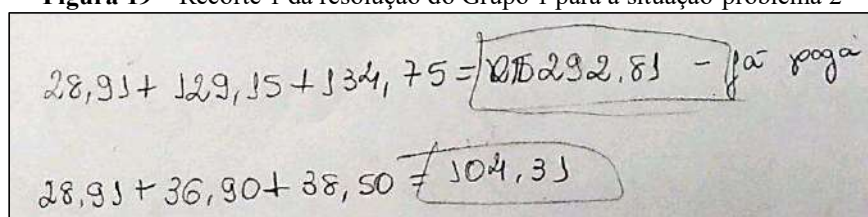 Figura 19 – Recorte 1 da resolução do Grupo 1 para a situação-problema 2
28,91 + 129,15 + 134,75 = 292,81 - já paga
28,91 + 36,90 + 38,50 = 104,31